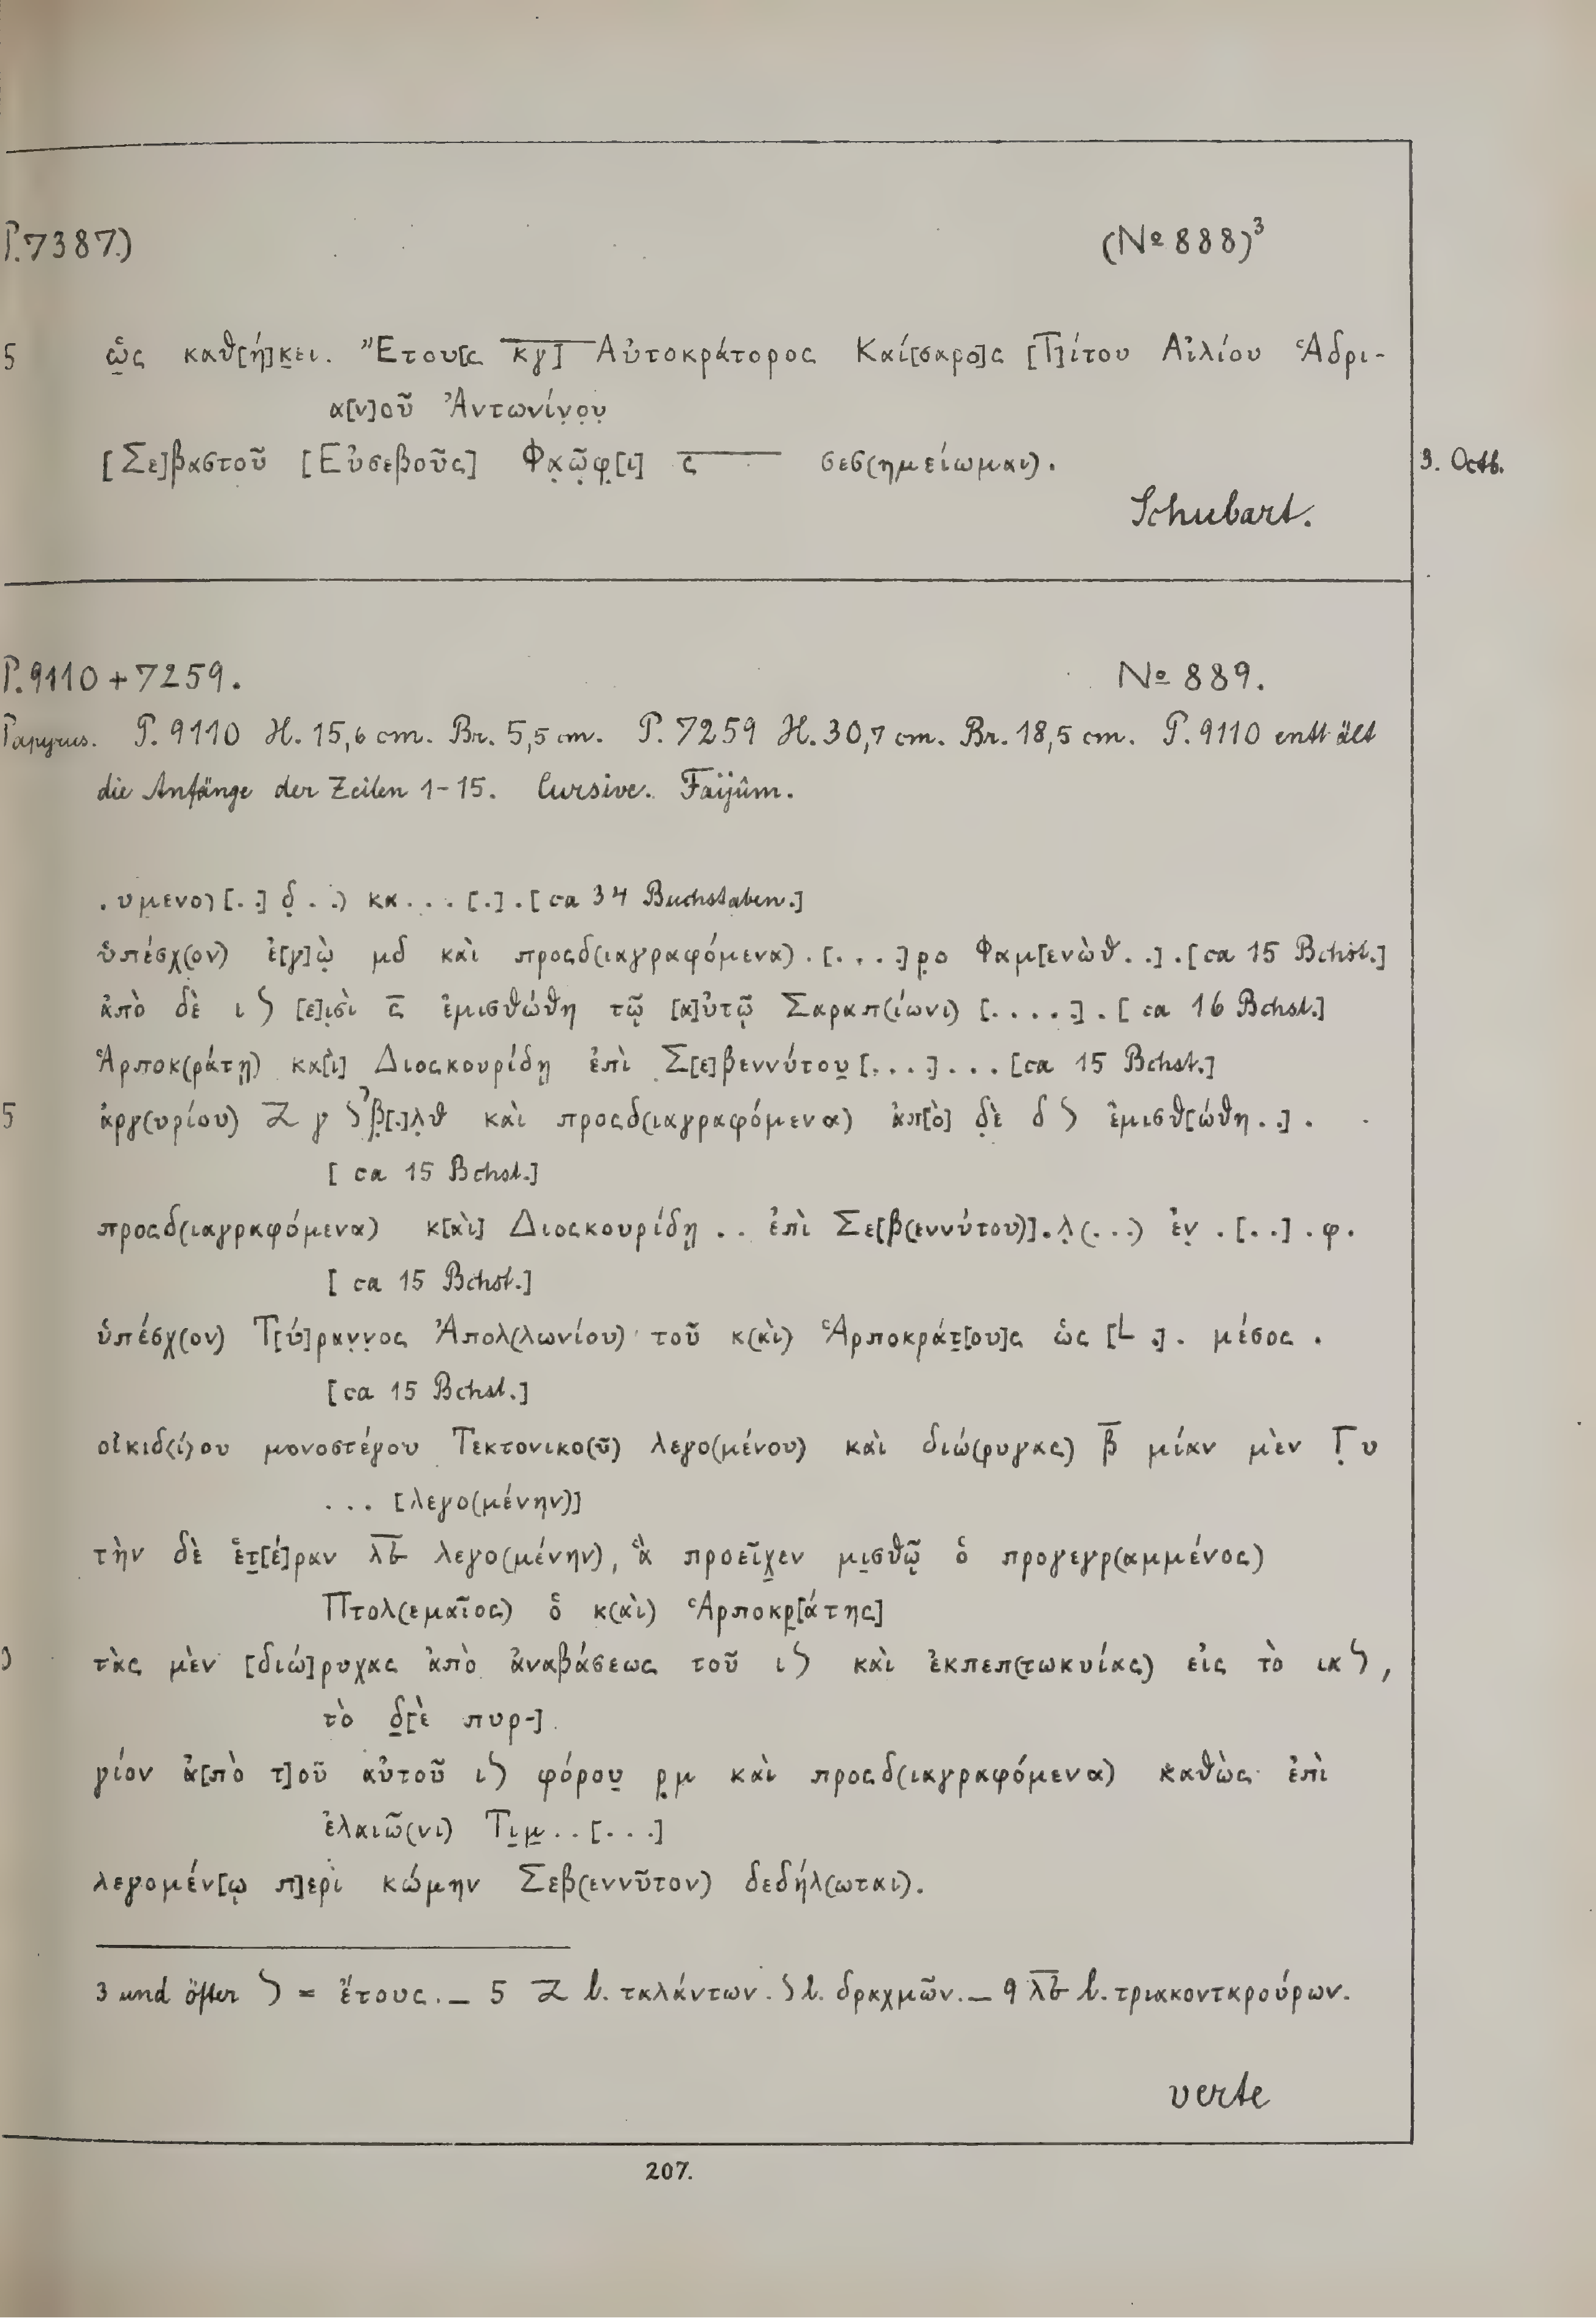 P.7387.) (№ 888)³
5 ὡ̣ς καθ[ή]κει. Ἔτου[ς κγ] Αὐτοκράτορος Καί[σαρο]ς [Τ]ίτου Αἰλίου Ἁδρι-
α[ν]οῦ Ἀντωνίν̣ο̣υ̣
[Σε]βαστοῦ [Εὐσεβοῦς] Φα̣ῶ̣φ̣[ι] ς σεσ(ημείωμαι). 3. Octb.
Schubart.
P.9110 + 7259. № 889.
Papyrus. P. 9110 H. 15,6 cm. Br. 5,5 cm. P. 7259 H. 30,7 cm. Br. 18,5 cm. P. 9110 enthält
die Anfänge der Zeilen 1-15. Cursive. Faijûm.
. υμενο) [. .] δ̣ . .) κα . . . [.] . [ca 34 Buchstaben.]
ὑπέσχ(ον) ἐ[γ]ὼ̣ μδ καὶ προσδ(ιαγραφόμενα) . [. . . .]ρ̣ο Φαμ[ενὼθ . .] . [ca 15 Bchst.]
ἀπὸ δὲ ι ϛ [ε]ἰσὶ ς̅ ἐμισθώθη τῷ [α]ὐτῷ Σαραπ(ίωνι) [. . . . .] . [ca 16 Bchst.]
Ἁρποκ(ράτῃ) κα[ὶ] Διοσκουρίδῃ ἐπὶ Σ[ε]βεννύτου̣ [. . . .] . . . [ca 15 Bchst.]
5 ἀργ(υρίου) Ζ γ ϛ ʼβ̣[.]λ̣θ καὶ προσδ(ιαγραφόμενα) ἀπ[ὸ] δ̣ὲ δ ϛ ἐμισθ[ώθη . .] .
[ca 15 Bchst.]
προσδ(ιαγραφόμενα) κ[αὶ] Διοσκουρίδῃ . . ἐπὶ Σε[β(εννύτου)] . λ̣(. . .) ἐν̣ . [. .] . φ .
[ca 15 Bchst.]
ὑπέσχ(ον) Τ[ύ]ραν̣ν̣ος Ἀπολ(λωνίου) τοῦ κ(αὶ) Ἁρποκράτ̣[ου]ς ὡς [L .] . μέσος .
[ca 15 Bchst.]
οἰκιδ(ί)ου μονοστέγου Τεκτονικο(ῦ) λεγο(μένου) καὶ διώ(ρυγας) β̅ μίαν μὲν Γ̣υ
. . . [λεγο(μένην)]
τὴν δὲ ἑτ̣[έ]ραν λ̅b̅ λεγο(μένην), ἃ προεῖχ̣εν μι̣σθῷ ὁ προγεγρ(αμμένος)
Πτολ(εμαῖος) ὁ κ(αὶ) Ἁρποκρ̣[άτης]
τὰς μὲν [διώ]ρυχας ἀπὸ ἀναβάσεως τοῦ ι ϛ καὶ ἐκπεπ(τωκυίας) εἰς τὸ ια ϛ,
τὸ δ̣[ὲ πυρ-]
γίον ἀ[πὸ τ]οῦ αὐτοῦ ι ϛ φόρου̣ ρ̣μ καὶ προσδ(ιαγραφόμενα) καθὼς ἐπὶ
ἐλαιῶ(νι) Τι̣μ̣ . . [. . .]
λεγομέν[ῳ π]ερὶ κώμην Σεβ(εννῦτον) δεδήλ(ωται).
3 und öfter ϛ = ἔτους. _ 5 Ζ l. ταλάντων. ϛ l. δραχμῶν. _ 9 λ̅b̅ l. τριακονταρούρων.
verte
207.